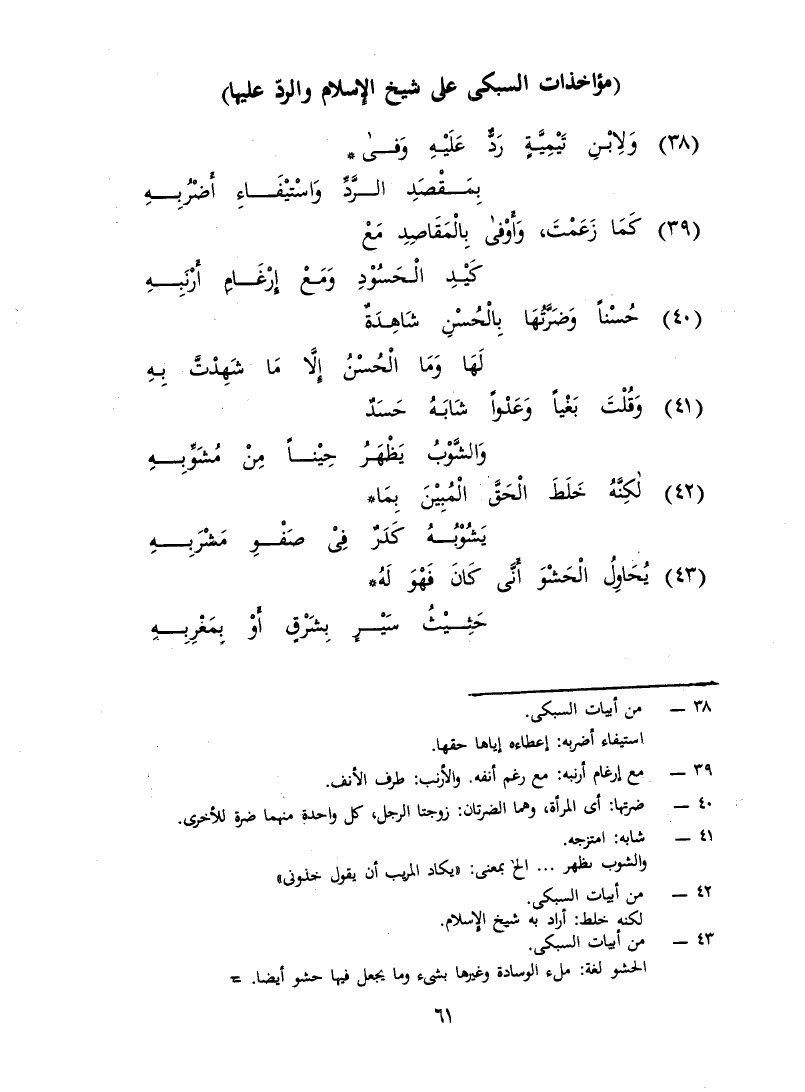 (مؤاخذات السبكى على شيخ الإسلام والردّ عليها)
(٣٨) وَلِابْنِ تَيْمِيَّةٍ رَدٌّ عَلَيْهِ وَفىٰ *
بِمَقْصَدِ الرَّدِّ وَاسْتِيْفَاءِ أَضْرُبِهِ
(٣٩) كَمَا زَعَمْتَ، وَأَوْفىٰ بِالْمَقَاصِدِ مَعْ
كَيْدِ الْحَسُوْدِ وَمَعْ إِرْغَامِ أَرْنَبِهِ
(٤٠) حُسْناً وَضَرَّتُهَا بِالْحُسْنِ شَاهِدَةٌ
لَهَا وَمَا الْحُسْنُ إِلَّا مَا شَهِدْتَّ بِهِ
(٤١) وَقُلْتَ بَغْياً وَعَدْواً شَابَهُ حَسَدٌ
وَالشَّوْبُ يَظْهَرُ حِيْناً مِنْ مُشَوِّبِهِ
(٤٢) لٰكِنَّهُ خَلَطَ الْحَقَّ الْمُبِيْنَ بِمَا*
يَشُوْبُهُ كَدَرٌ فِىْ صَفْوِ مَشْرَبِهِ
(٤٣) يُحَاوِلُ الْحَشْوَ أَنَّى كَانَ فَهْوَ لَهُ*
حَثِيْثُ سَيْرٍ بِشَرْقٍ أَوْ بِمَغْرِبِهِ
٣٨ — من أبيات السبكى.
استيفاء أضربه: إعطاءه إياها حقها.
٣٩ — مع إرغام أرنبه: مع رغم أنفه. والأرنب: طرف الأنف.
٤٠ — ضرتها: أى المرأة، وهما الضرتان: زوجتا الرجل، كل واحدة منهما ضرة للأخرى.
٤١ — شابه: امتزجه.
والشوب يظهر ... الخ بمعنى: «يكاد المريب أن يقول خذونى»
٤٢ — من أبيات السبكى.
لكنه خلط: أراد به شيخ الإسلام.
٤٣ — من أبيات السبكى.
الحشو لغة: ملء الوسادة وغيرها بشىء وما يجعل فيها حشو أيضا. =
٦١